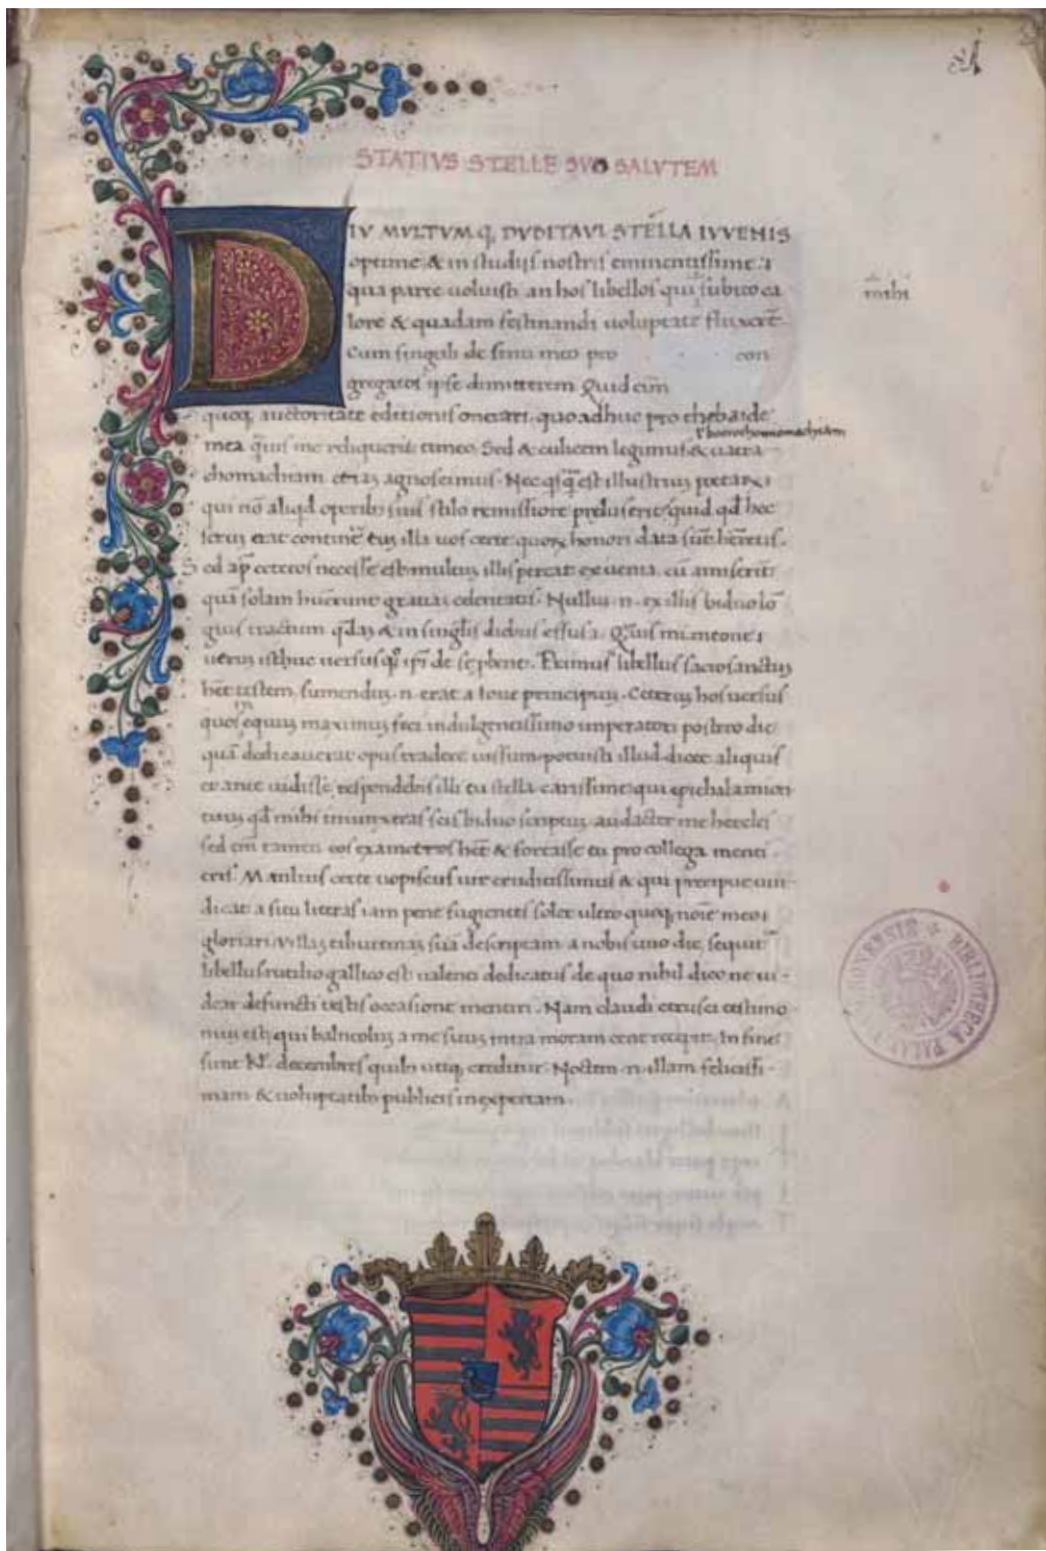 STATIVS STELLE SVO SALVTEM
DIV MVLTVMq; DVBITAVI STELLA IVVENIS
optime & in studijs nostris eminentissime
qua parte uoluisti an hos libellos qui subito ca
mihi
lore & quadam festinandi uoluptate fluxerūt
Cum singuli de sinu meo pro con
gregatos ipse dimitterem Quid eīm
quoq; auctoritate editionis onerari. quo adhuc pro thebaide
mea q̃uis me reliquerit timeo. Sed & culicem legimus & uatra
chomachiam etiaꝫ agnoscimus. Nec est illustrium poetarꝫ
qui nō aliqd operibꝫ suis stilo remissiore preluserit quid qd hec
serum erat illa uos certe quorꝫ honori data
Sed ap̃ ceteros necesse est multum illis pereat ex uenia. cū amiserīt
quā solam habuerunt gratiaꝫ celeritatis. Nullum .n. ex illis biduo lō
gius tractum & in singulis diebus effusa.
uerum istuc uersus de se probent. Primus libellus sacrosanctum
testem. sumendum .n. erat a Ioue principium. Ceterum hos uersus
quos equum maximum feci indulgentissimo imperatori postero die
quā dedicauerat opus tradere iussum. potuisti illud dicere aliquis
et ante uidisse. respondebis illi tu stella carissime qui epithalamion
tuum qd mihi iniunxeras scis biduo scriptum. audacter me hercles
sed tamen & fortasse tu pro collega menti
eris. Manlius certe uopiscus uir eruditissimus & qui precipue uin-
dicat a situ literas iam pene fugientes solet ultro quoq; noīe meo
gloriari uillaꝫ tiburtinaꝫ suā descriptam a nobis uno die. sequit̃
libellus rutilio gallico est ualenti dedicatus de quo nihil dico ne ui-
dear defuncti testis occasione mentiri. Nam claudi etrusci testimo
nium est qui balneolum a me suum intra moram cene recepit. In fine
sunt Kl. decembres quibꝫ utiq; creditur. Noctem .n. illam felicissi-
mam & uoluptatibꝫ publicis inexpertam.